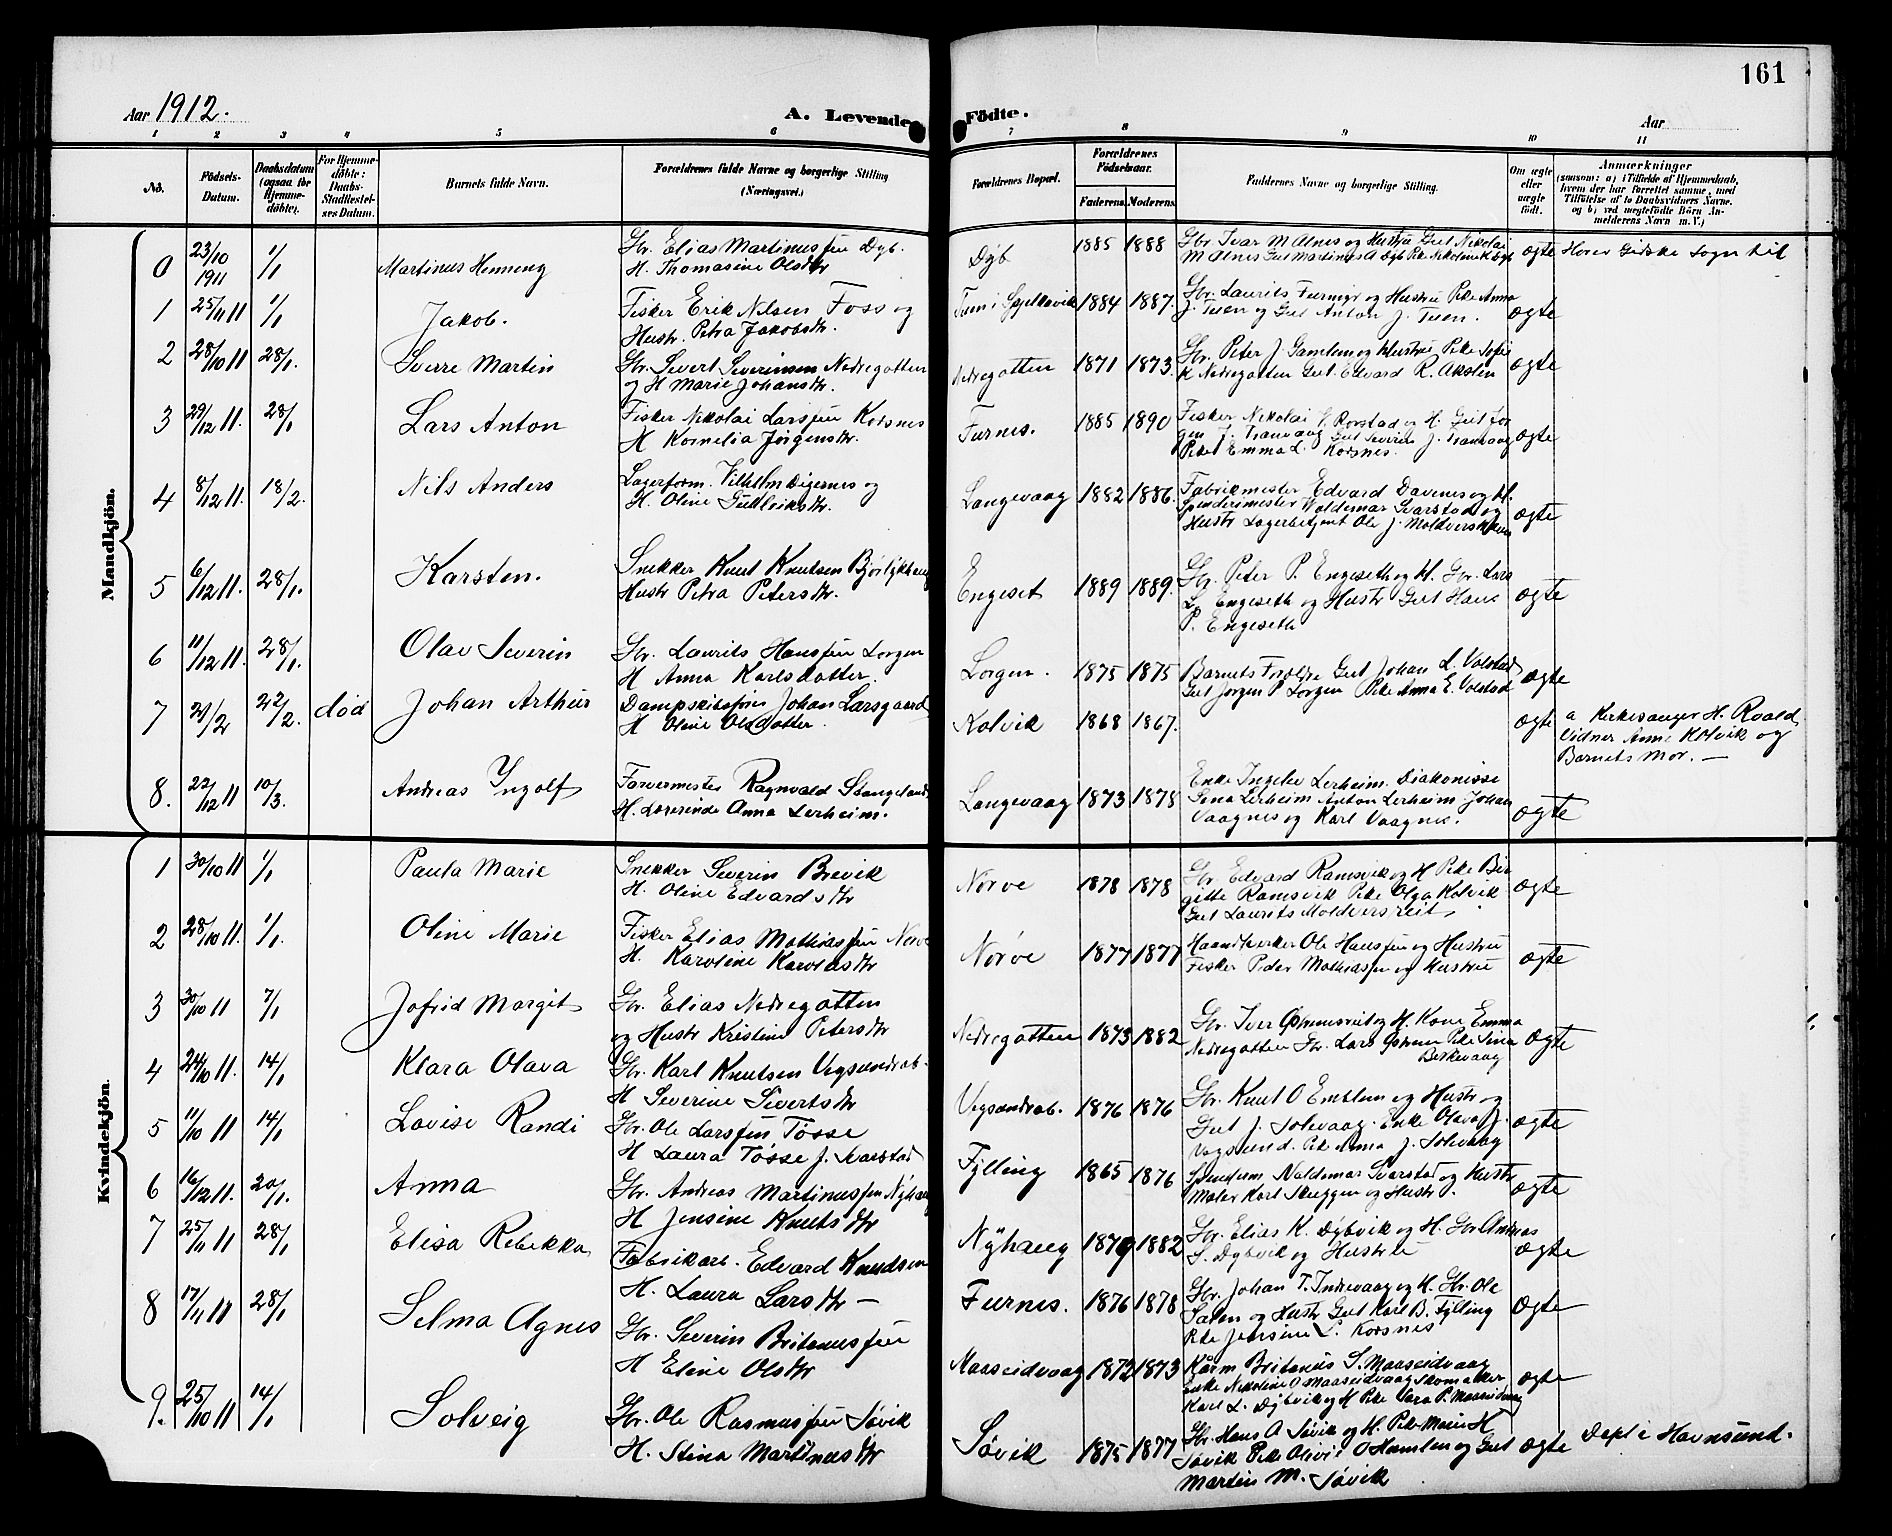 161
Aar 1912. A. Levende Födte. Aar
1 2 3 4 5 6 7 8 9 10 11
No. Födsels-Datum. Daabsdatum (ogsaa for Hjemmedöbte). For Hjemmedöbte: Daabs-Stadfæstelses Datum. Barnets fulde Navn. Forældrenes fulde Navne og borgerlige Stilling (Næringsvei.) Forældrenes Bopæl. Forældrenes Födselsaar. Faderens. Moderens. Faddernes Navne og borgerlige Stilling. Om ægte eller uægte födt. Anmærkninger (saasom: a) i Tilfælde af Hjemmedaab, hvem der har forrettet samme, med Tilföielse af to Daabsvidners Navne. og b) ved uægtefödte Börn Anmelderens Navn m. V.)
Mandkjön.
0 23/10 1911 1/1 Martinus Henning Gbr. Elias Martinussen Dyb. Dyb 1885 1888 Gbr Ivar M Alnes og Hustru Gut Nikolai ægte Hører Giske Sogn til
H. Thomasine Olsdtr M Alnes Gut Martinus A Dyb Pike Nikoline K Dyb
1 25/11 11 1/1 Jakob. Fisker Erik Nilsen Foss og Tuen i Spjelkavik 1884 1887. Gbr. Laurits Furmyr og Hustru Pike Anna ægte
Hustr. Petra Jakobsdtr. J. Tuen og Gut Anton J. Tuen.
2 28/10 11 28/1. Sverre Martin Gbr. Sivert Severinsen Nedregotten Nedregotten 1871 1873. Gbr. Peter J. Gamlem og Hustru Pike Sofie ægte
og H Marie Johansdtr. K Nedregotten Gut. Edvard R. Akslen
3 29/12 11. 28/1 Lars Anton Fisker Nikolai Larssen Korsnes Furnes. 1885 1890 Fisker Nikolai Rorstad og H. Gut Jør ægte
H Kornelia Jørgensdtr. gen J. Tranvaag Gut Severin J. Tranvaag
Pike Emma L. Korsnes.
4 8/12 11. 18/2. Nils Anders Lagerform. Vilhelm Digernes og Langevaag 1882 1886. Fabrikmester Edvard Davenes og H. ægte
H. Oline Gudleiksdtr. Spinderimester Waldemar Svarstad og
Hustr Lagerbetjent Ole J. Moldvers
5 6/12 11. 28/1. Karsten. Snekker Knut Knutsen Bjørlykhaug Engeset 1889 1889. Gbr. Peter P. Engeseth og H. Gbr. Lars ægte
Hustr Petra Petersdtr. L. Engeseth og Hustr Gut Hans
P. Engeseth
6 11/12 11. 28/1. Olav Severin Gbr. Laurits Hanssen Lorgen Lorgen. 1875 1875 Barnets Foreldre Gut Johan L. Volstad ægte
H Anna Karlsdatter. Gut Jørgen P Lorgen Pike Anna E. Volstad
7 21/2 22/2. død Johan Arthur Dampskibsfører Johan Larsgaard Kolvik 1868 1867. ægte a Kirkesanger H. Roald
H Oline Olsdatter. Vidner Anne Kolvik og
Barnets Mor. —
8. 22/12 11 10/3. Andreas Ingolf Farvermester Ragnvald Stangeland Langevaag 1873 1878 Enke Ingelev Lerheim. Diakonisse ægte
H. Lærerinde Anna Lerheim. Sena Lerheim Anton Lerheim Johan
Vaagnes og Karl Vaagnes.
Kvindekjön.
1 30/10 11 1/1 Paula Marie Snekker Severin Brevik Nørve 1878 1878 Gbr Edvard Ramsvik og H Pike Bir ægte
H. Oline Edvardsdtr gitte Ramsvik Pike Olga Kolvik
Gut Laurits Moldversreit
2 28/10 11. 1/1. Oline Marie Fisker Elias Mathiassen Nørve Nørve 1877 1877 Haandverker Ole Hanssen og Hustru ægte
H. Karoline Karolusdtr Fisker Peder Mathiassen og Hustru
3 30/10 11 7/1 Jofrid Margit Gbr. Elias Nedregotten Nedregotten 1873 1882 Gbr. Iver og H. Kone Emma ægte
og Hustr Kristine Petersdtr Nedregotten Gbr. Lars Pike Sina
Birkevaag
4 24/10 11. 14/1 Klara Olava Gbr. Karl Knutsen Vegsundrab. Vegsundrab. 1876 1876 Gbr. Knut O Emblem og Hustr og ægte
H Severine Sivertsdtr Gut J. Solevaag. Enke Olava J.
Vegsund. Pike Anna J. Solevaag
5 11/10 11 14/1 Lovise Randi Gbr. Ole Larssen Tøsse Fylling 1865 1876 Spindem Valdemar Svarstad og Hustr ægte
H Laura Tøsse f. Svarstad Maler Karl Skuggen og Hustr.
6 16/12 11. 20/1. Anna Gbr. Andreas Martinussen Nyhaug Nyhaug 1879 1882 Gbr. Elias K. Dybvik og H. Gbr. Andreas ægte
H Jensine Knutsdtr S. Dybvik og Hustru
7 25/11 11 28/1 Elisa Rebekka Fabrikarb. Edvard Knudsen Furnes. 1876 1878 Gbr. Johan T. Indrevaag og H. Gbr. Ole ægte
H. Laura Larsdtr — Salen og Hustr Gut Karl B. Fylling
Pike Jensine L. Korsnes
8 17/11 11 28/1 Selma Agnes Gbr. Severin Britanussen Maaseidvaag 1872 1873 Kårm Britanus S. Maaseidvaag ægte
H Eline Olsdtr Enke Nikoline O Maaseidvaag Skomaker
Karl L. Dybvik og H Pike Sara P. Maaseidvaag
9. 25/10 11 14/1 Solveig Gbr. Ole Rasmussen Søvik Søvik 1875 1877 Gbr. Hans A Søvik og H. Pike Marie H ægte Døpt i Havnsund.
H. Stina Martinusdtr Søvik Pike Olivie O Hamlen og Gut
Martin M. Søvik